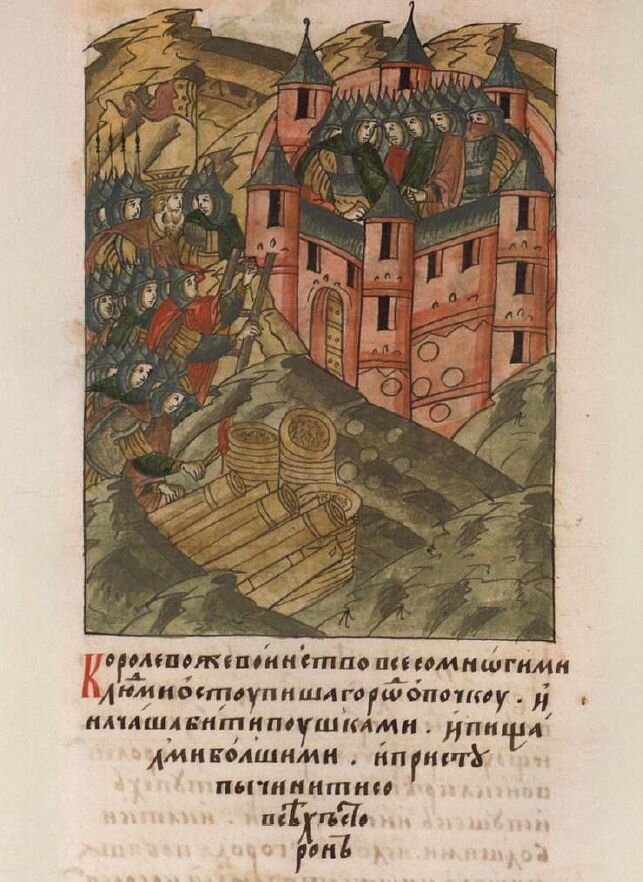 Королево же воинство все со мнѡгими
люⷣми ѡстоупиша гораⷣ опочкоу . и
начаша бити поушками . и пища
лми болшими . и присту
пы чинити со
всѣхъ сто
ронъ